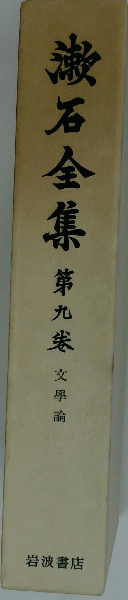 漱石全集
第九卷
文學論
岩波書店